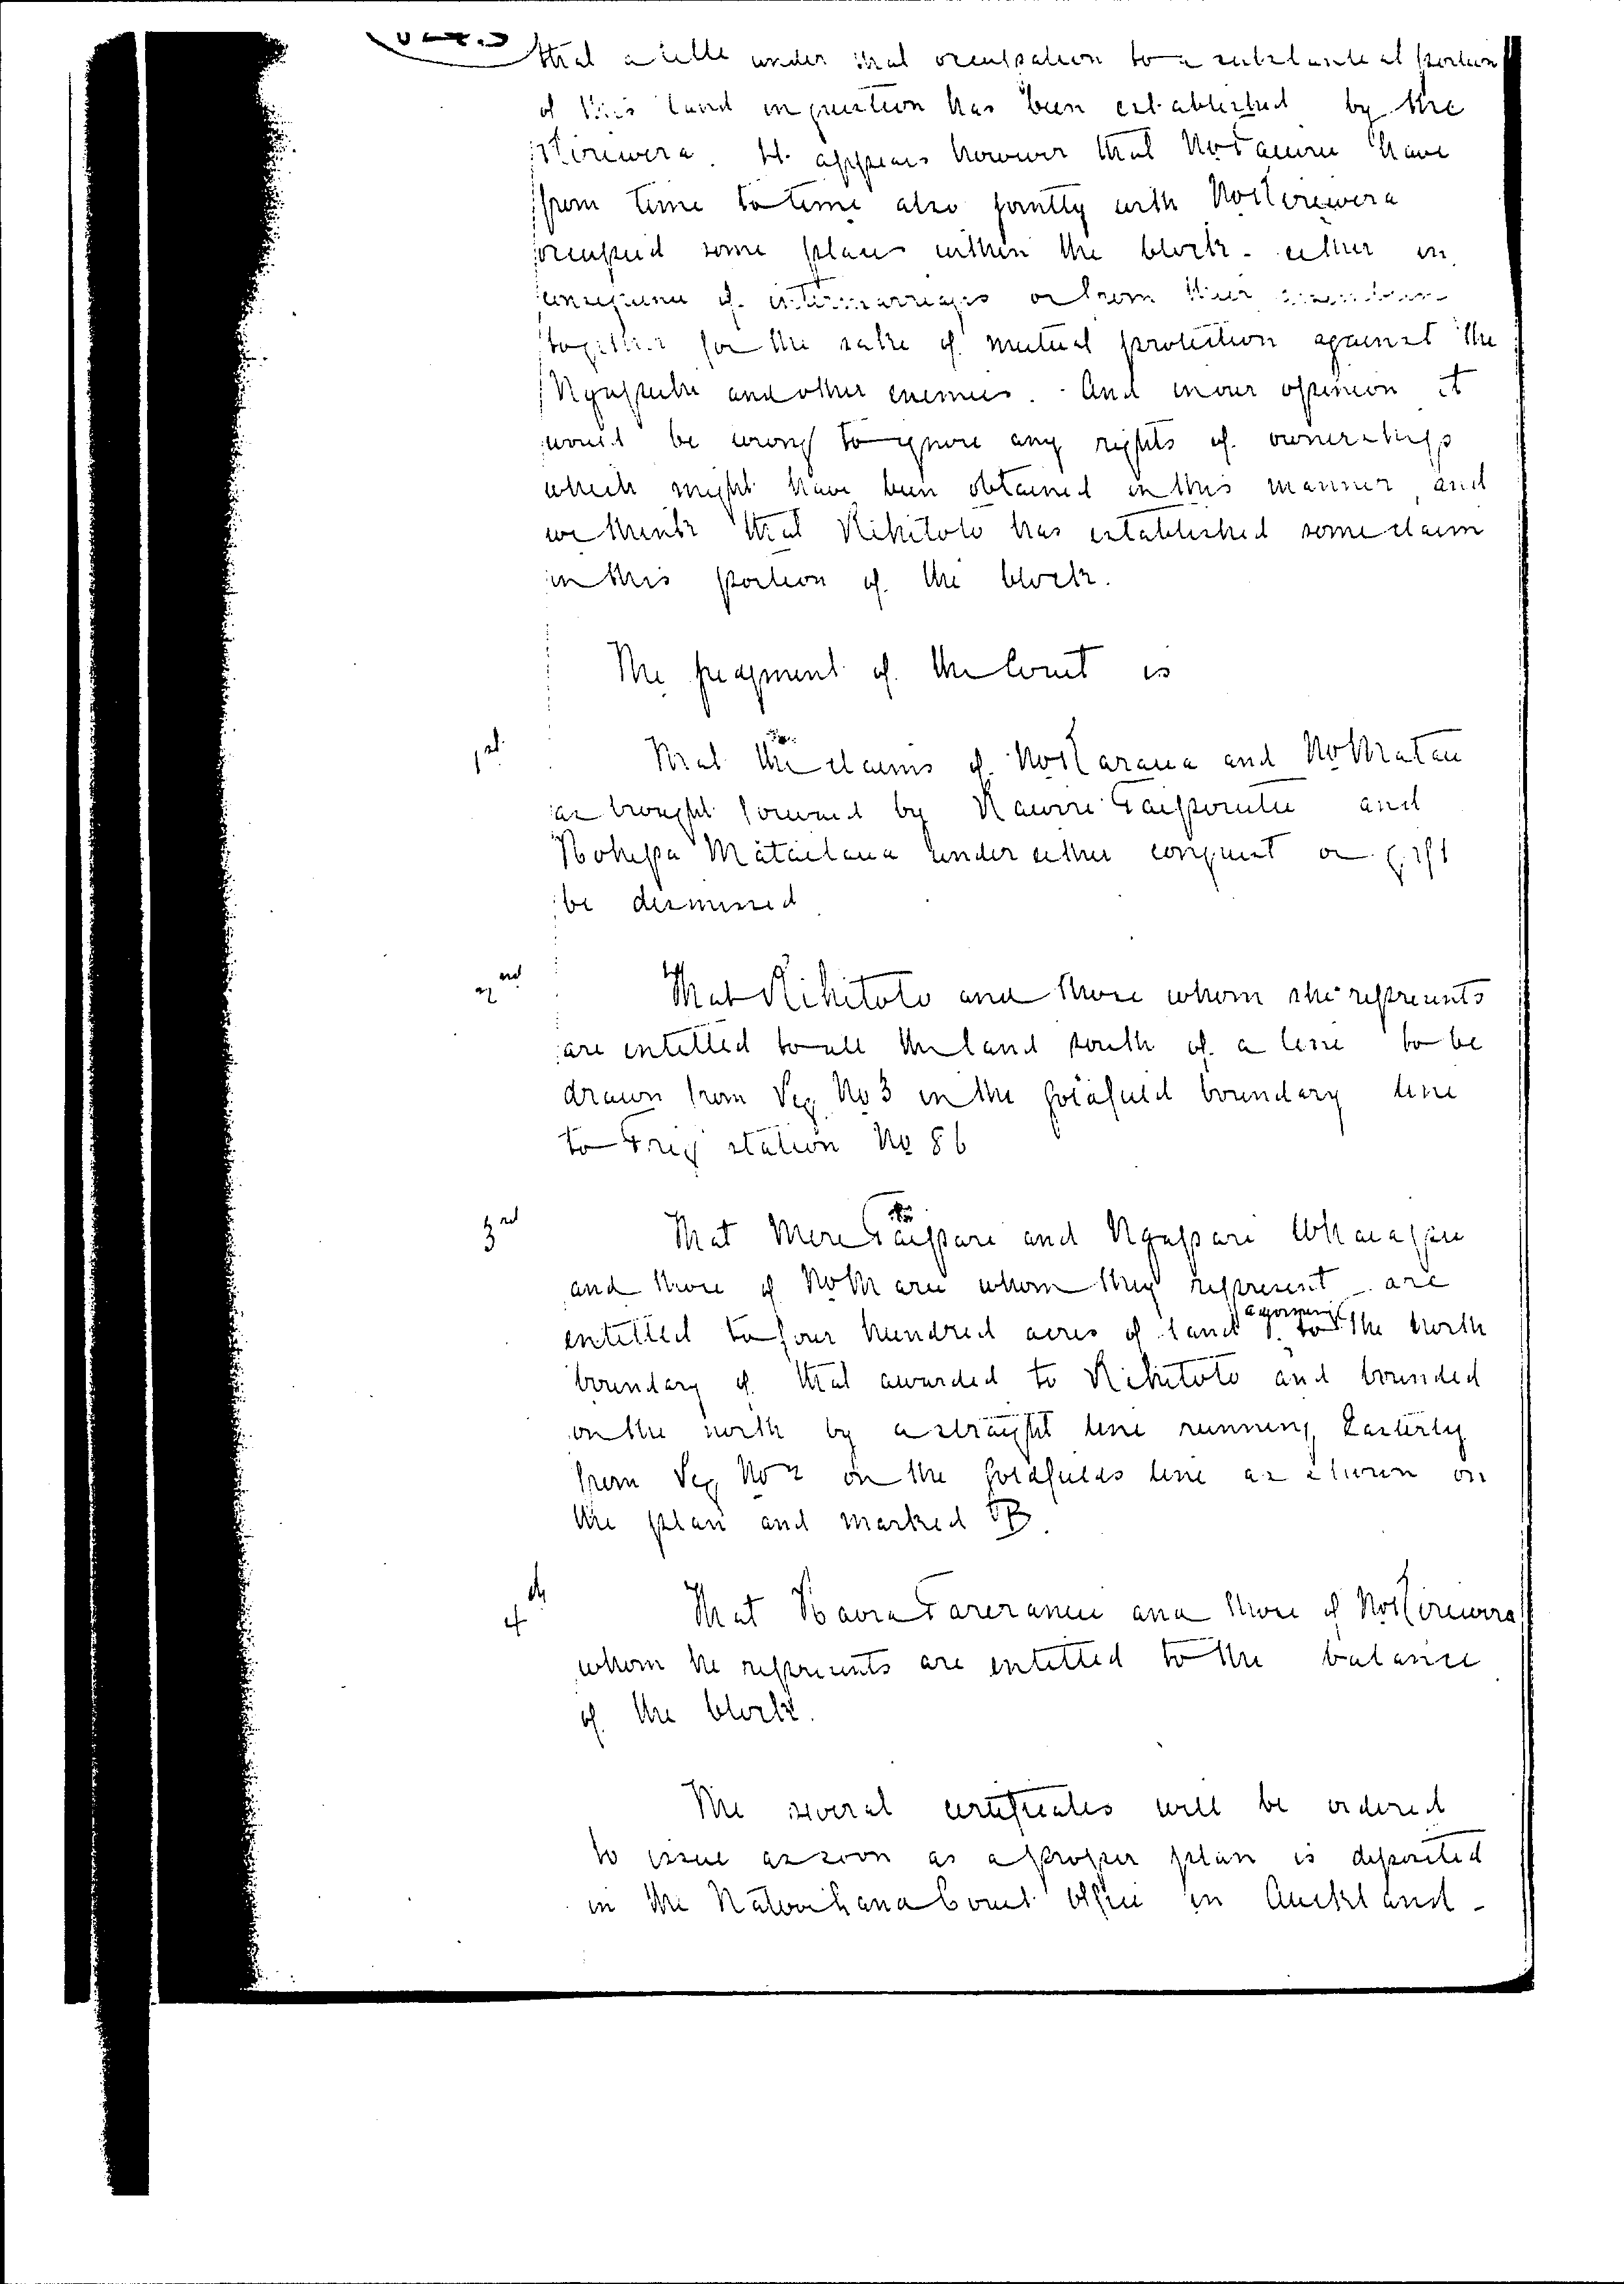 that a title under that occupation to a substantial portion
of this land in question has been established by the
Kiriwera. It appears however that N. Tauru have
from time to time also jointly with N. Kiriwera
occupied some places within the block - either in
consequence of intermarriages or from their
together for the sake of mutual protection against the
Ngapuhi and other enemies. And in our opinion it
would be wrong to ignore any rights of ownership
which might have been obtained in this manner, and
we think that Rihitoto has established some claim
in this portion of the block.
The judgment of the Court is
1st That the claims of N. Karaua and N. Matau
as brought forward by Rawiri Taiporutu and
Hohepa Mataitaua under either conquest or gift
be dismissed
2nd That Rihitoto and those whom she represents
are entitled to all the land south of a line to be
drawn from Peg No 3 in the goldfield boundary line
to Trig station No 86
3rd That Mere Taipari and Ngapari Whaiapu
and those of N. Maru whom they represent are
entitled to four hundred acres of land adjoining to the north
boundary of that awarded to Rihitoto and bounded
on the north by a straight line running Easterly
from Peg No 2 on the goldfields line as shewn on
the plan and marked B.
4th That Haora Tareranui and those of N. Kiriwera
whom he represents are entitled to the balance
of the block.
The several certificates will be ordered
to issue as soon as a proper plan is deposited
in the Native Land Court Office in Auckland -